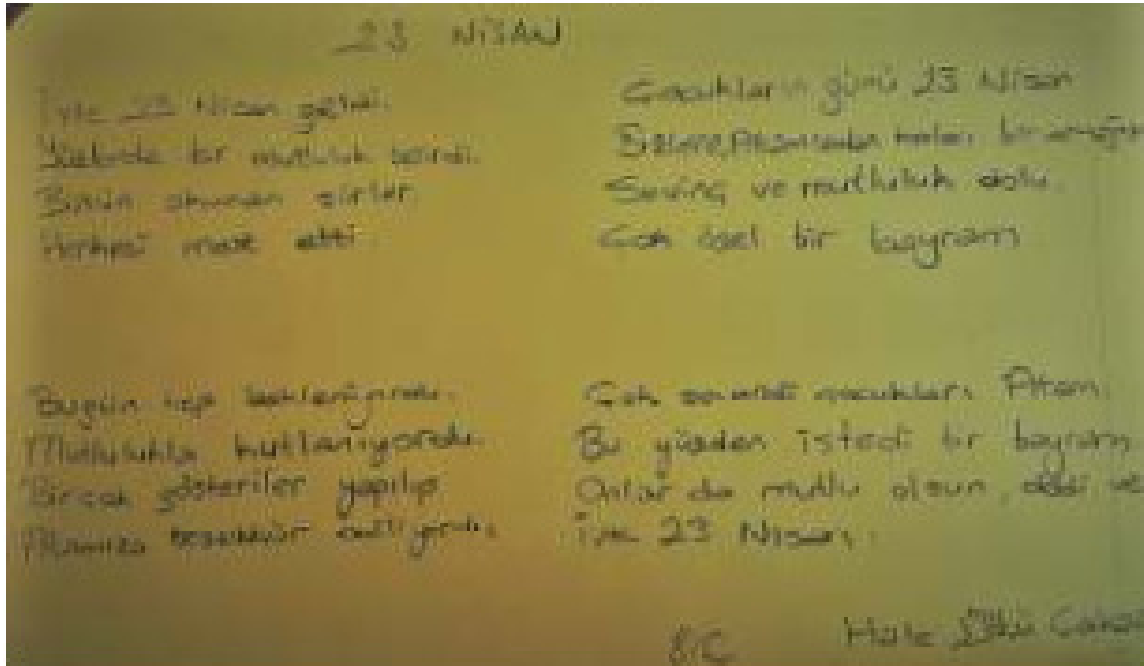 23 NİSAN
İşte 23 Nisan geldi.
bir mutluluk belirdi.
Bütün okunan şiirler.
Herkesi mest etti.
Bugün hep bekleniyordu.
Mutlulukla kutlanıyordu.
Birçok gösteriler yapılıp
Atamıza teşekkür ediliyordu.
Çocukların günü 23 Nisan
Bizlere, Atamızdan bir armağan
Sevinç ve mutluluk dolu.
Çok özel bir bayram
Çok severdi çocukları Atam.
Bu yüzden istedi bir bayram
Onlar da mutlu olsun, dedi ve
İşte 23 Nisan.
8/C Hale